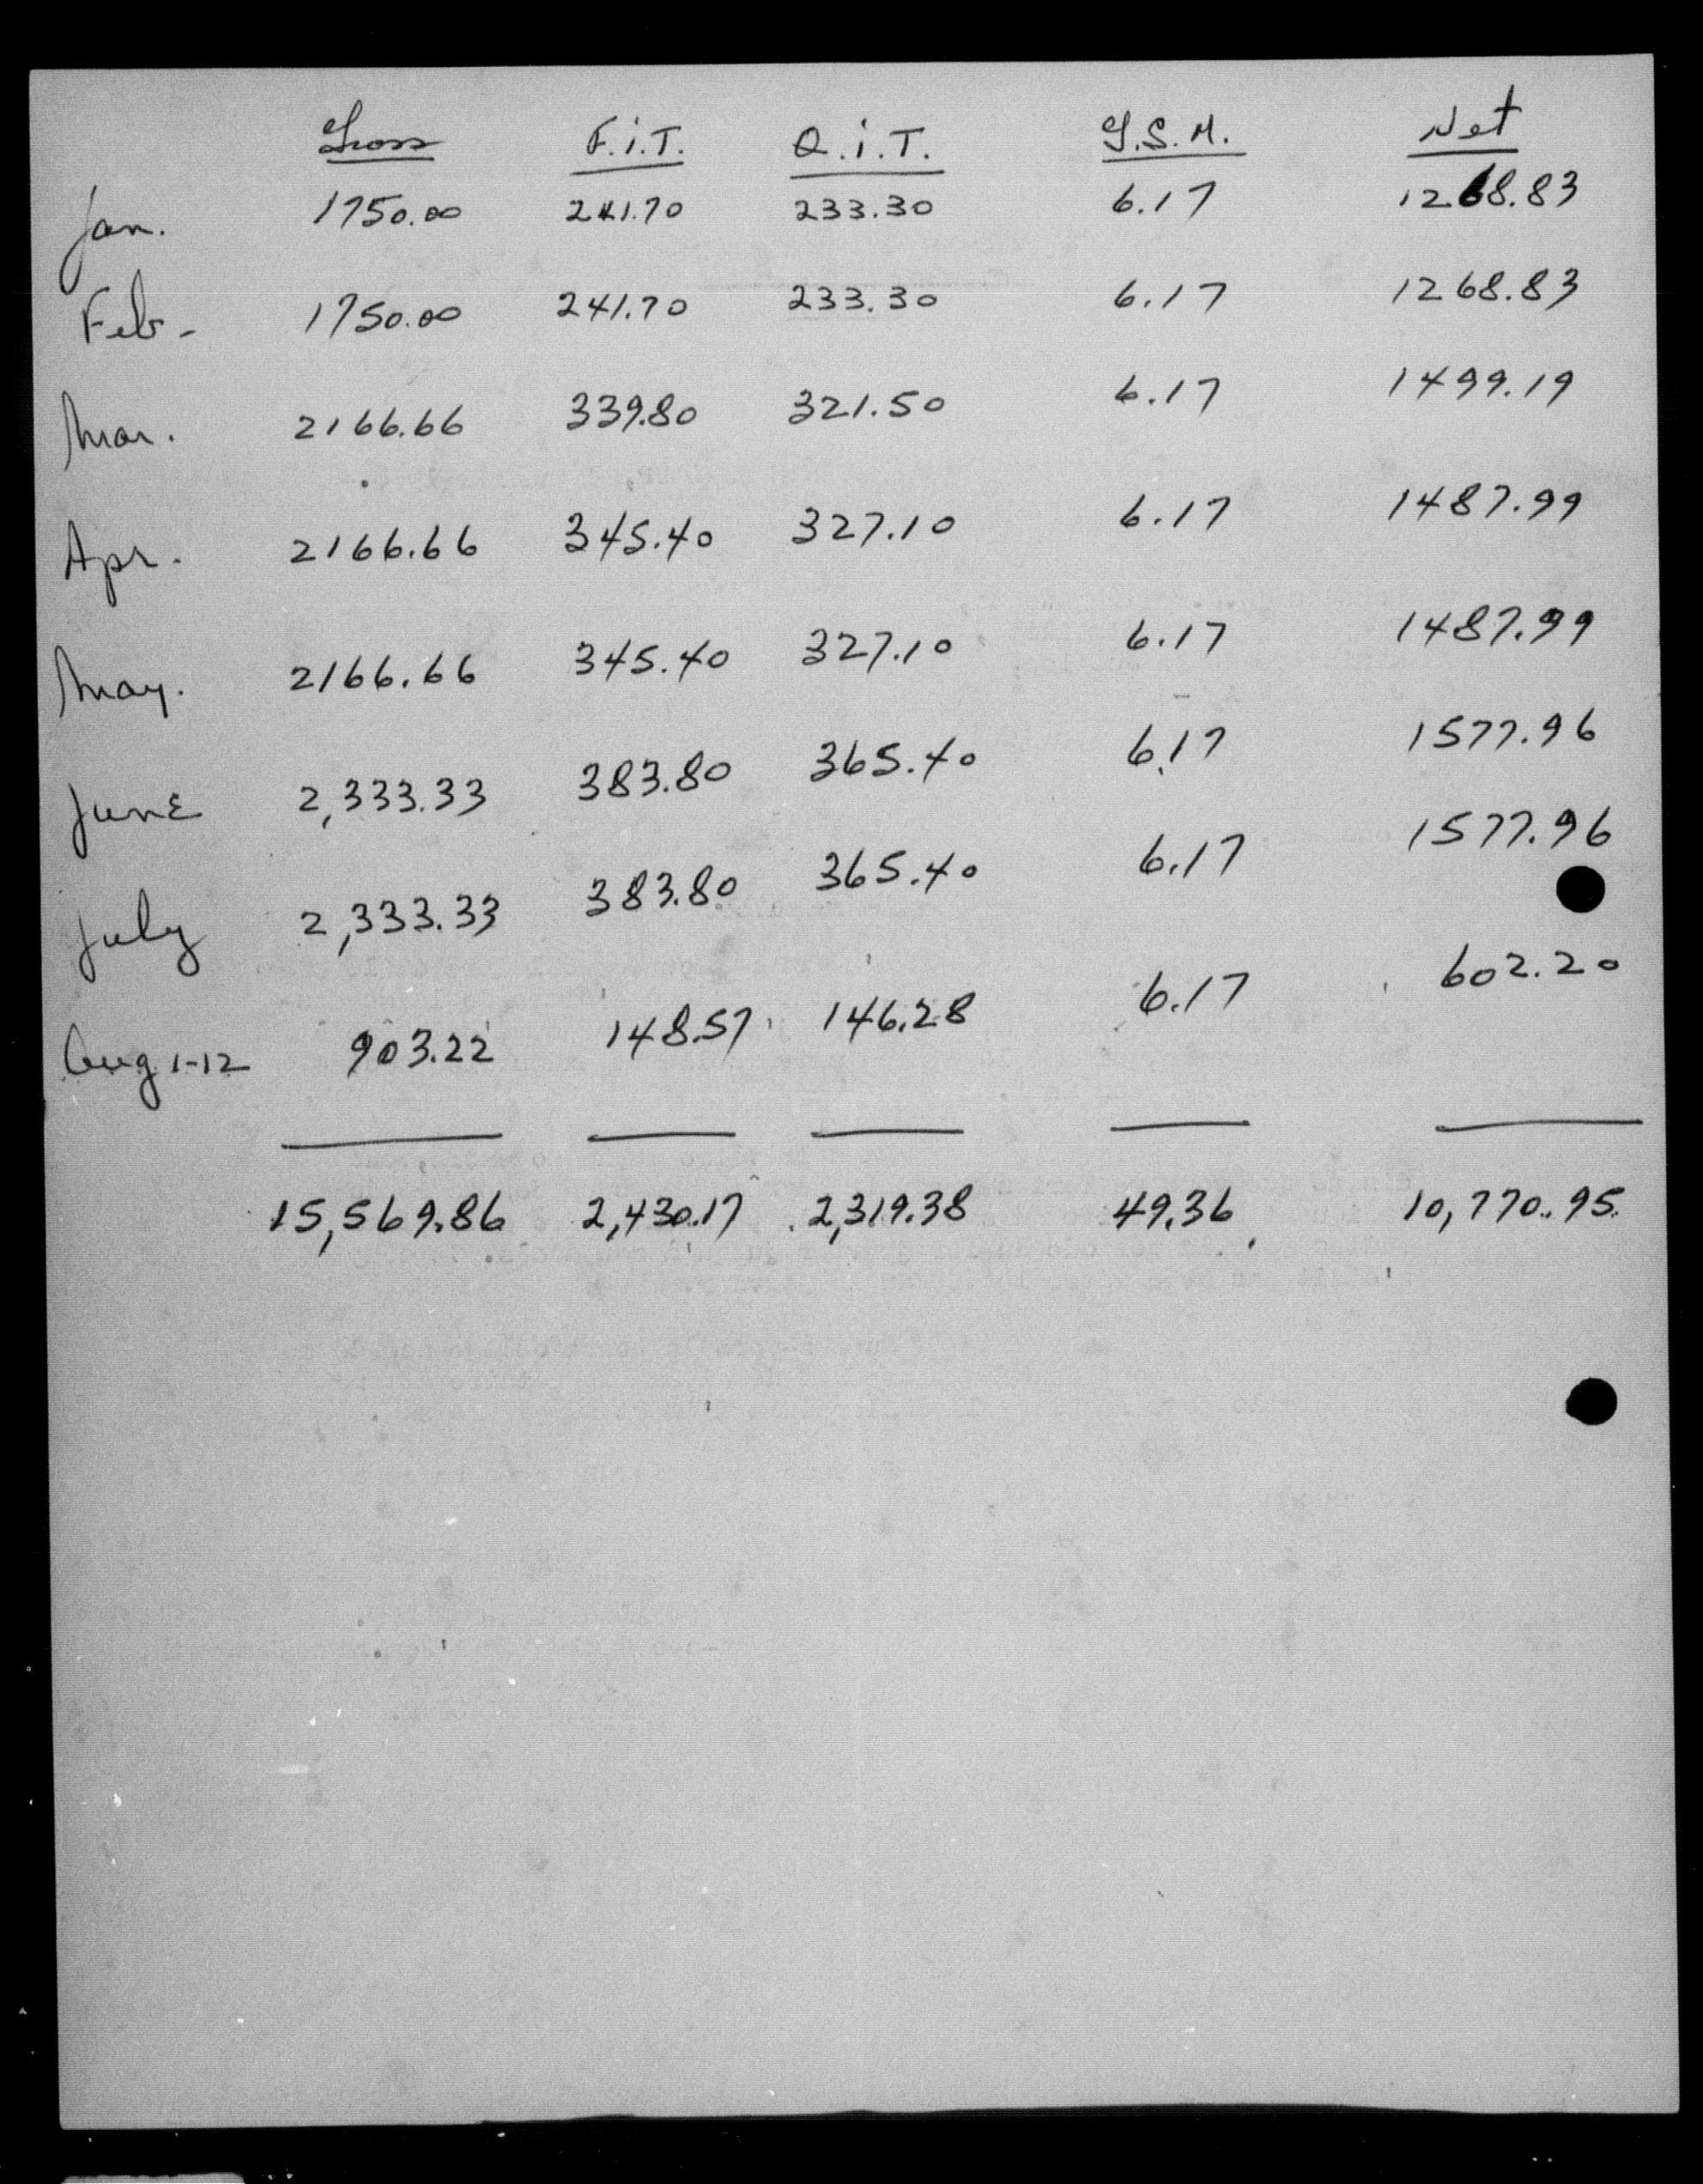 Gross F.i.T. Q.i.T. G.S.M. Net
Jan. 1750.00 241.70 233.30 6.17 1268.83
Feb. 1750.00 241.70 233.30 6.17 1268.83
Mar. 2166.66 339.80 321.50 6.17 1499.19
Apr. 2166.66 345.40 327.10 6.17 1487.99
May. 2166.66 345.40 327.10 6.17 1487.99
June 2,333.33 383.80 365.40 6.17 1577.96
July 2,333.33 383.80 365.40 6.17 1577.96
Aug 1-12 903.22 148.57 146.28 6.17 602.20
15,569.86 2,430.17 2,319.38 49.36 10,770.95